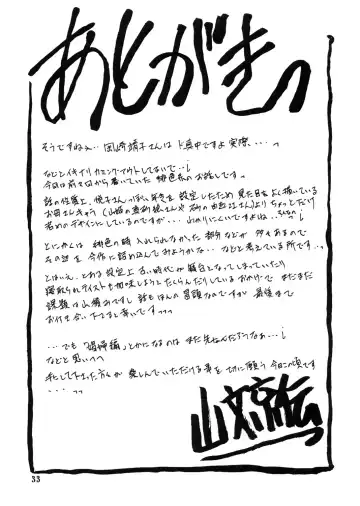 あとがきっ
そうですねぇ… 岡崎靖子さんは ド真中ですよ 実際...っ
などとイキナリ カミングアウトしてないで…!
今回は前々回から書いていた 緋色系のお話しです っ
話の位置上、悦子さんっぽい年を 設定したため 見た目も よく描いている
お母さんキャラ よりちょっとだけ
若めのデザインにしているのですが... 山かりにくいですよね
とにかくは 緋色の時 入れられなかった 部分などが 多々あるので
その辺を 今作に詰め込んでみようかな.. などと考えている所です..っ
とはいえ、とある設定上 古い時代が 舞台となってしまっていたり
寝取られテイストも加味しようと たくらんだりしているおかげで まだまだ
課題は山積みですし 話もほんの冒頭なのですが 最後まで
お付き合い下さると幸いですっっ
...でも 「 編」とかになるのは まだ先なんだろうなぁ…!
などと思いつつ
手にして下さった方々が 楽しんでいただける事を 切に願う 今日この頃です
....っっ
山文京伝
33